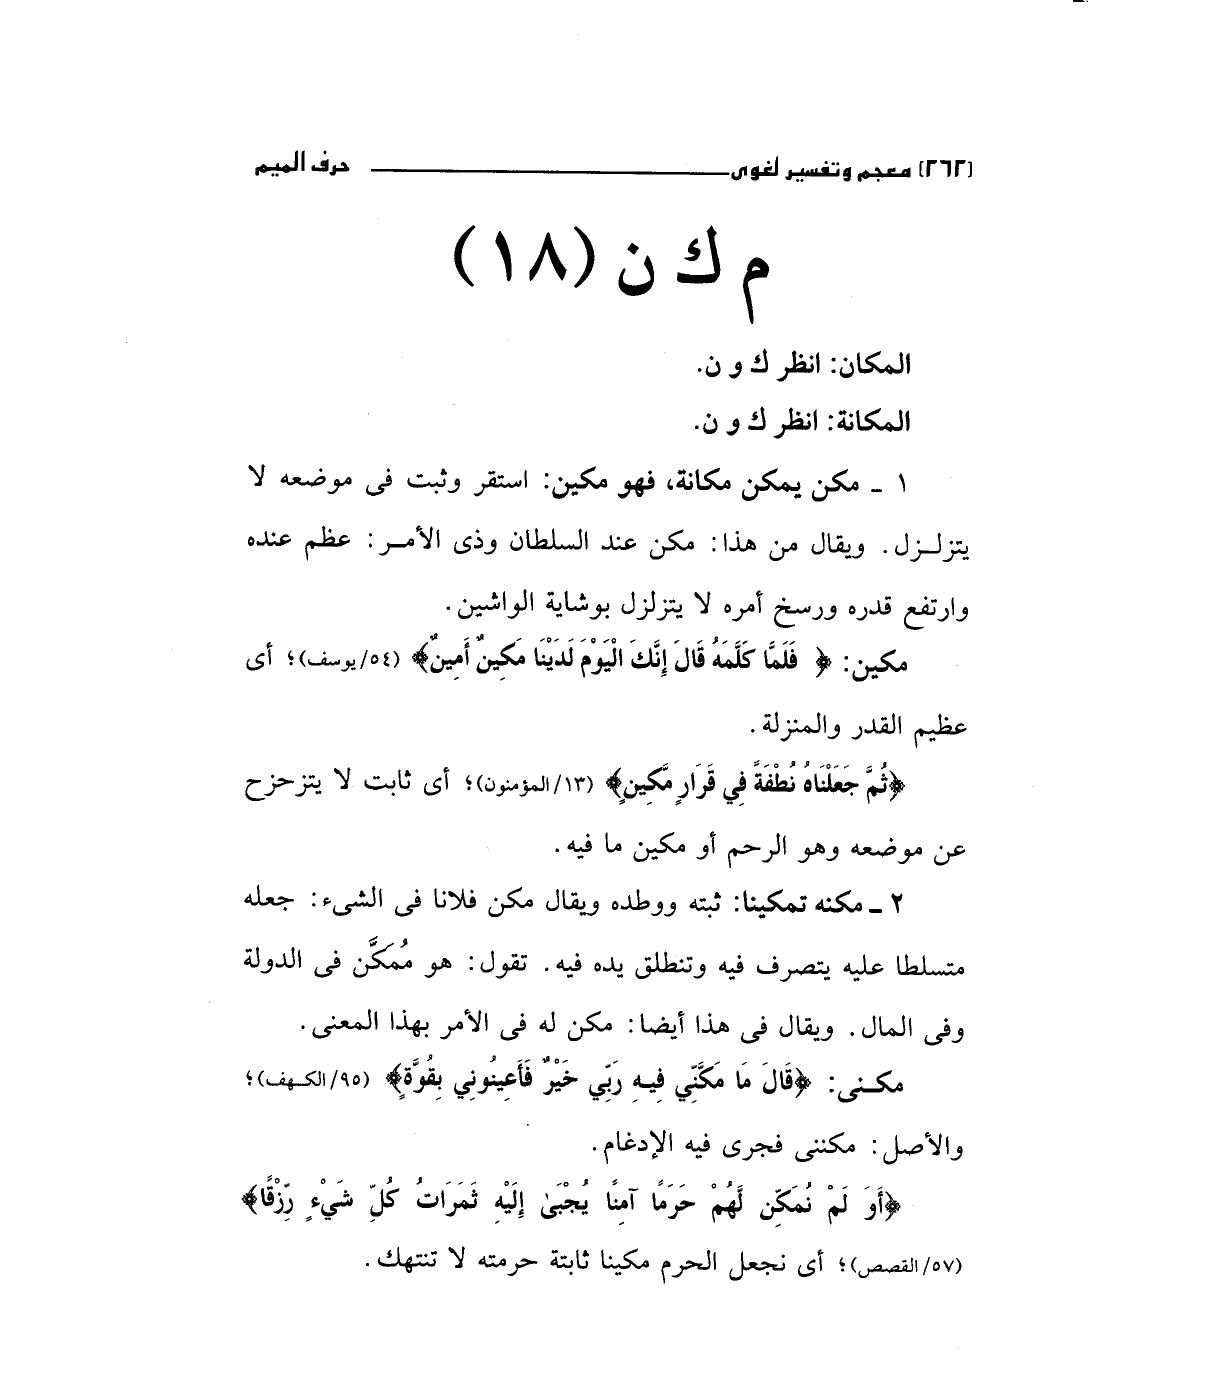 [٢٦٢] معجم وتفسير لغوى ـــــــــــــــ حرف الميم
م ك ن (١٨)
المكان: انظر ك و ن.
المكانة: انظر ك و ن.
١ ـ مكن يمكن مكانة، فهو مكين: استقر وثبت فى موضعه لا
يتزلـزل. ويقال من هذا: مكن عند السلطان وذى الأمـر: عظم عنده
وارتفع قدره ورسخ أمره لا يتزلزل بوشاية الواشين.
مكين: ﴿ فَلَمَّا كَلَّمَهُ قَالَ إِنَّكَ الْيَوْمَ لَدَيْنَا مَكِينٌ أَمِينٌ﴾ (٥٤/يوسف)؛ أى
عظيم القدر والمنزلة.
﴿ثُمَّ جَعَلْنَاهُ نُطْفَةً فِي قَرَارٍ مَّكِينٍ﴾ (١٣/المؤمنون)؛ أى ثابت لا يتزحزح
عن موضعه وهو الرحم أو مكين ما فيه.
٢ ـ مكنه تمكينا: ثبته ووطده ويقال مكن فلانا فى الشىء: جعله
متسلطا عليه يتصرف فيه وتنطلق يده فيه. تقول: هو مُمَكَّن فى الدولة
وفى المال. ويقال فى هذا أيضا: مكن له فى الأمر بهذا المعنى.
مكـنى: ﴿قَالَ مَا مَكَّنِّي فِيهِ رَبِّي خَيْرٌ فَأَعِينُونِي بِقُوَّةٍ﴾ (٩٥/الكـهف)؛
والأصل: مكننى فجرى فيه الإدغام.
﴿أَوَ لَمْ نُمَكِّن لَّهُمْ حَرَمًا آمِنًا يُجْبَىٰ إِلَيْهِ ثَمَرَاتُ كُلِّ شَيْءٍ رِّزْقًا﴾
(٥٧/القصص)؛ أى نجعل الحرم مكينا ثابتة حرمته لا تنتهك.